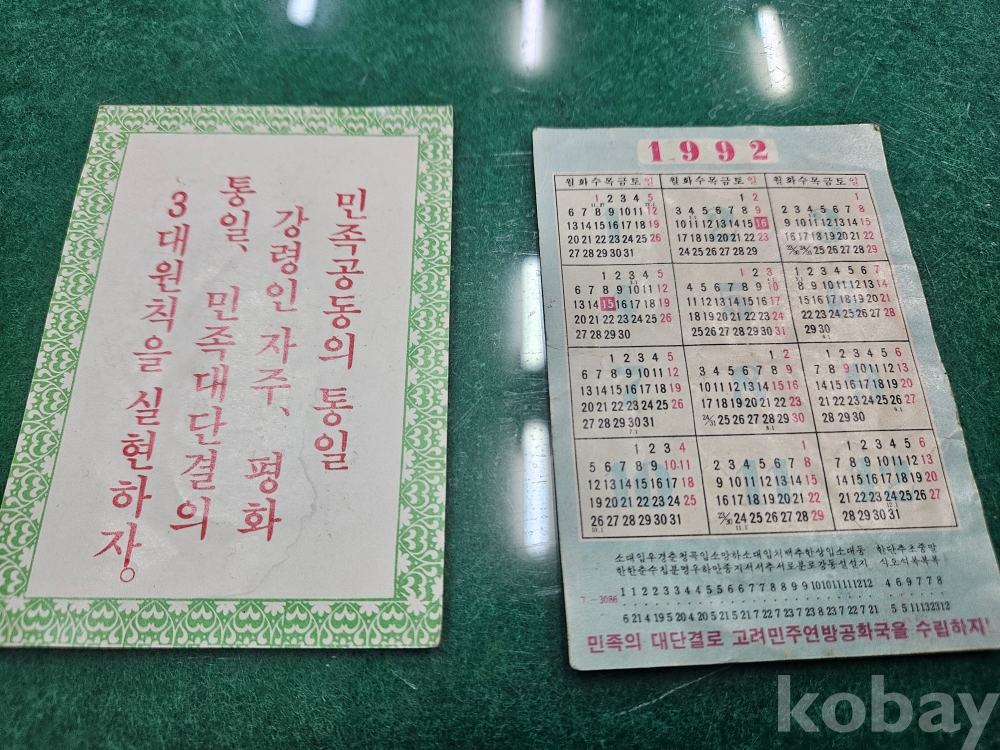 민족공동의 통일
강령인 자주, 평화
통일, 민족대단결의
3대원칙을 실현하자!
1992
월화수목금토일 월화수목금토일 월화수목금토일
1 2 3 4 5
6 7 8 9 10 11 12
13 14 15 16 17 18 19
20 21 22 23 24 25 26
27 28 29 30 31
1 2
3 4 5 6 7 8 9
10 11 12 13 14 15 16
17 18 19 20 21 22 23
24 25 26 27 28 29
1
2 3 4 5 6 7 8
9 10 11 12 13 14 15
16 17 18 19 20 21 22
23/30 24/31 25 26 27 28 29
1 2 3 4 5
6 7 8 9 10 11 12
13 14 15 16 17 18 19
20 21 22 23 24 25 26
27 28 29 30
1 2 3
4 5 6 7 8 9 10
11 12 13 14 15 16 17
18 19 20 21 22 23 24
25 26 27 28 29 30 31
1 2 3 4 5 6 7
8 9 10 11 12 13 14
15 16 17 18 19 20 21
22 23 24 25 26 27 28
29 30
1 2 3 4 5
6 7 8 9 10 11 12
13 14 15 16 17 18 19
20 21 22 23 24 25 26
27 28 29 30 31
1 2
3 4 5 6 7 8 9
10 11 12 13 14 15 16
17 18 19 20 21 22 23
24/31 25 26 27 28 29 30
1 2 3 4 5 6
7 8 9 10 11 12 13
14 15 16 17 18 19 20
21 22 23 24 25 26 27
28 29 30
1 2 3 4
5 6 7 8 9 10 11
12 13 14 15 16 17 18
19 20 21 22 23 24 25
26 27 28 29 30 31
1
2 3 4 5 6 7 8
9 10 11 12 13 14 15
16 17 18 19 20 21 22
23/30 24 25 26 27 28 29
1 2 3 4 5 6
7 8 9 10 11 12 13
14 15 16 17 18 19 20
21 22 23 24 25 26 27
28 29 30 31
소대입우경춘청곡입소망하소대입처백추한상입소대동 한단추초중말
한한춘수칩분명우하만종지서서추서로분로강동설설지 식오석복복복
ㄱ—3086
1 1 2 2 3 3 4 4 5 5 6 6 7 7 8 8 9 9 10 10 11 11 12 12 4 6 9 7 7 8
6 21 4 19 5 20 4 20 5 21 5 21 7 22 7 23 7 23 8 23 7 22 7 21 5 5 11 13 23 12
민족의 대단결로 고려민주연방공화국을 수립하자!
kobay